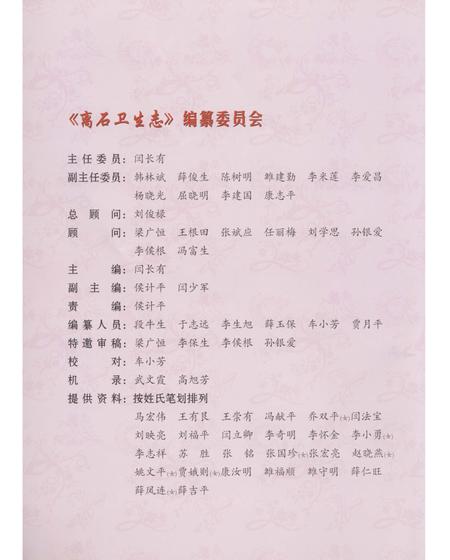 《离石卫生志》编纂委员会
主任委员：闫长有
副主任委员：韩林斌 薛俊生 陈树明 雒建勤 李来莲 李爱昌
杨晓光 屈晓明 李建国 康志平
总顾问：刘俊禄
顾问：梁广恒 王根田 张斌应 任丽梅 刘学思 孙银爱
李侯根 冯富生
主编：闫长有
副主编：侯计平 闫少军
责编：侯计平
编纂人员：段牛生 于志远 李生旭 薛玉保 车小芳 贾月平
特邀审稿：梁广恒 李保生 李侯根 孙银爱
校对：车小芳
机录：武文霞 高旭芳
提供资料：按姓氏笔划排列
马宏伟 王有艮 王崇有 冯献平 乔双平(女)闫法宝
刘映亮 刘福平 闫立卿 李奇明 李怀金 李小勇(女)
李志祥 苏胜 张铭 张国珍(女)张宏亮 赵晓燕(女)
姚文平(女)贾娥则(女)康汝明 雒福顺 雒守明 薛仁旺
薛凤连(女)薛吉平